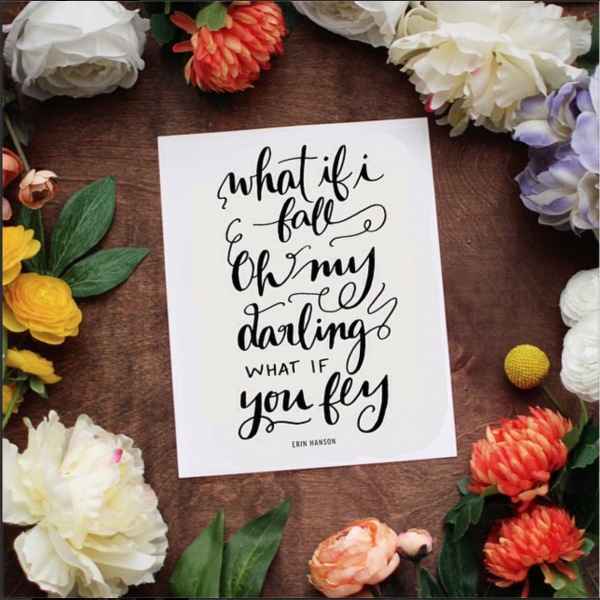 what if i
fall
Oh my
darling
WHAT IF
you fly
ERIN HANSON